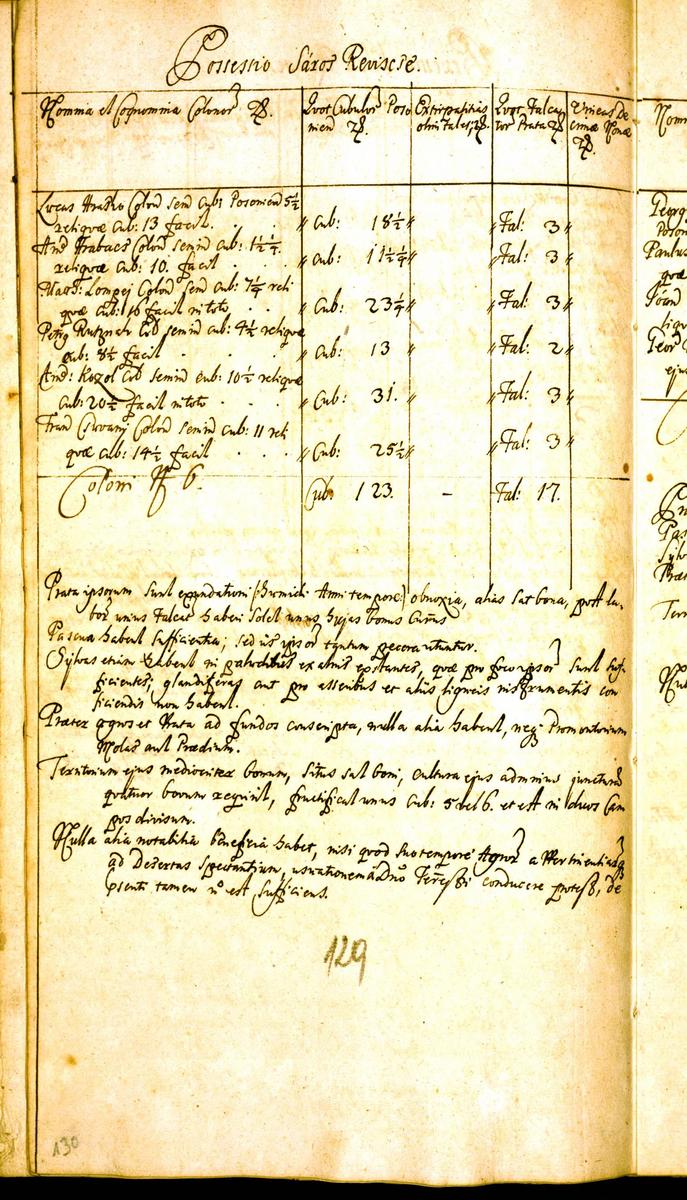 Possessio Sáros Reviscse.
Nomina et Cognomina Colonor
Quot Cubulor Poso
nien
Extirpatitias
olim tales
Quot Falcat
tor Prata
Vineas De
cimæ Nonæ
Lucas Hrasko Colon Semi Cub: Posonien 5½
reliquæ Cub: 13 facit. Cub: 18½ Fal: 3
And Hrabacs Colon semin Cub: 1½¼
reliquæ Cub: 10. facit Cub: 11½¼ Fal: 3
Lompej Colon Semi Cub: 7¼ reli
quæ Cub: 16 facit in toto Cub: 23¼ Fal: 3
semin Cub: 4½ reliquæ
Cub: 8½ facit Cub: 13 Fal: 2
And: Kozol Col semin Cub: 10½ reliquæ
Cub: 20½ facit in toto Cub: 31. Fal: 3
Fran Colon semin Cub: 11 reli
quæ Cub: 14½ facit Cub: 25½ Fal: 3
Coloni No 6. Cub: 123. – Fal: 17.
Prata ipsorum sunt exundationi (humidi Anni tempore) obnoxia, alias sat bona, post la-
bor unius falcat haberi solet unus hujus bonus Currus
Pascua habent sufficientia; sed iis ipsor tantum pecora utuntur.
Sylvas etiam habent in ex alnis exstantes, quæ pro foco ipsor sunt suf-
ficientes; glandiferas aut pro asseribus et aliis ligneis instrumentis con
ficiendis non habent.
Præter agros et Prata ad fundos conscripta, nulla alia habent, neq Promontorium
Molas aut Prædium.
Territorium ejus mediocriter bonum, situs sat boni, cultura ejus adminus junctura
quatuor boum requirit, fructificat unus Cub: 5 vel 6. et est in duos Cam
pos divisum.
Nulla alia notabilia beneficia habet, nisi quod suo tempore Agror a Pertinentiis
ad Desertas Spectantium, Dno Terrestri conducere potest, de
psenti tamen no est sufficiens.
129
130
Nom
Georg
Poson
Paulus
quæ
Joan
liqu
Geor
ejus
Pas
Sylv
Præt
Terr